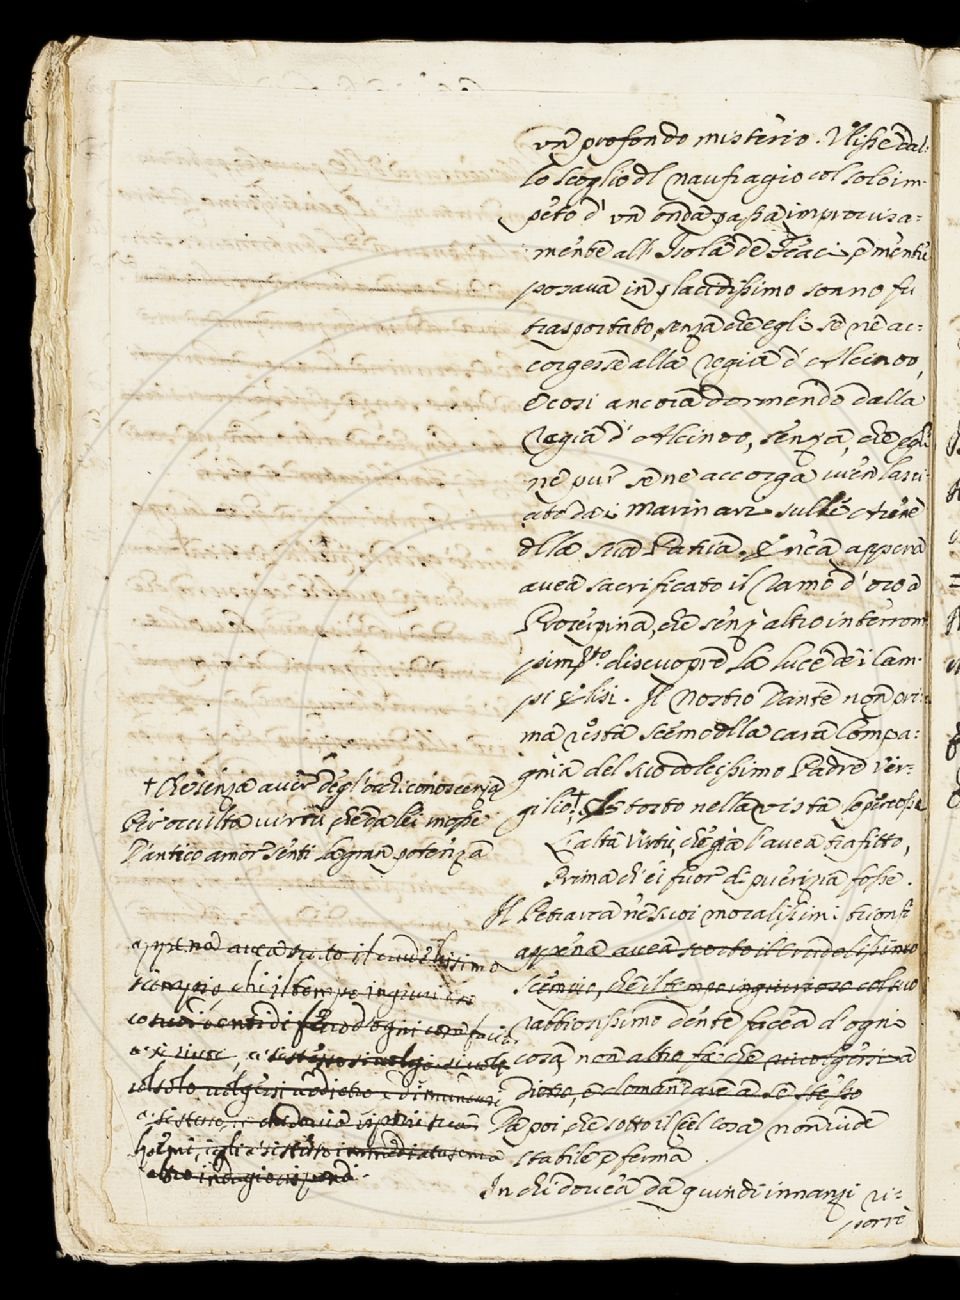 un profondo misterio. Ulisse dal-
lo scoglio dl naufragio col solo im-
peto d' un' onda passa improvisa=
mente all' Isola de Feaci, e mentre
posava in placidissimo sonno fu
trasportato, senza che egli se ne ac=
corgesse alla regia d' Alcinoo,
e così ancora dormendo dalla
regia d' Alcinoo, senza, che egli
ne pur se ne accorga vien lasci-
ato da i marinari sulle Arene
dlla sua Patria. Enea appena
avea sacrificato il Ramo d' oro a
Proserpina, che senz' altro interrom
pimto discuopre la luce de i Cam-
pi Elisi. Il nostro Dante non pri=
ma resta scemo dlla cara Compa=
gnia del suo dolcissimo Padre Ver-
gilio,+ tosto nella vista le percosse
L'alta virtù, che già l'avea trafitto,
Prima ch' ei fuor di puerizia fosse.
Il Petrarca ne suoi moralissimi trionfi
appena avea
scempio, che il tempo ingiurioso col suo
rabbiosissimo dente facea d'ogni
cosa non altro fà che rivolgersi a
dietro, e domandare a se stesso
Da poi che sotto il Ciel cosa non vidde
stabile, e ferma.
In chi dovea da quindi innanzi ri=
porre
+ Che senza aver degl' occhi conoscenza
Per occulta virtù, che da lei mosse
D'antico amor senti la gran potenza
appena avea
scempio, chi il tempo ingiurioso